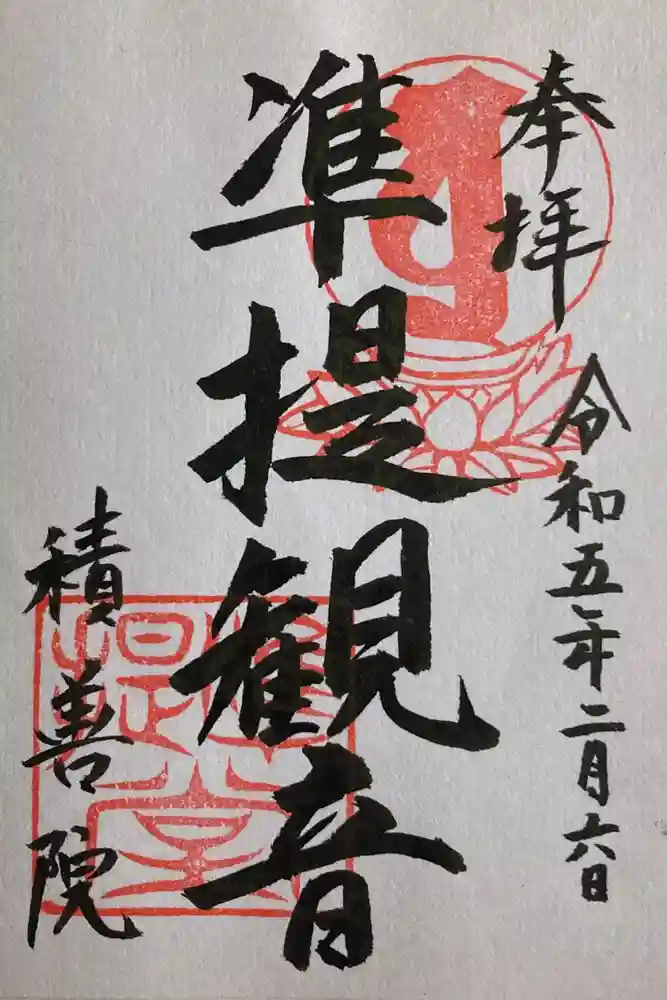 奉拝
令和五年二月六日
准提観音
積善院